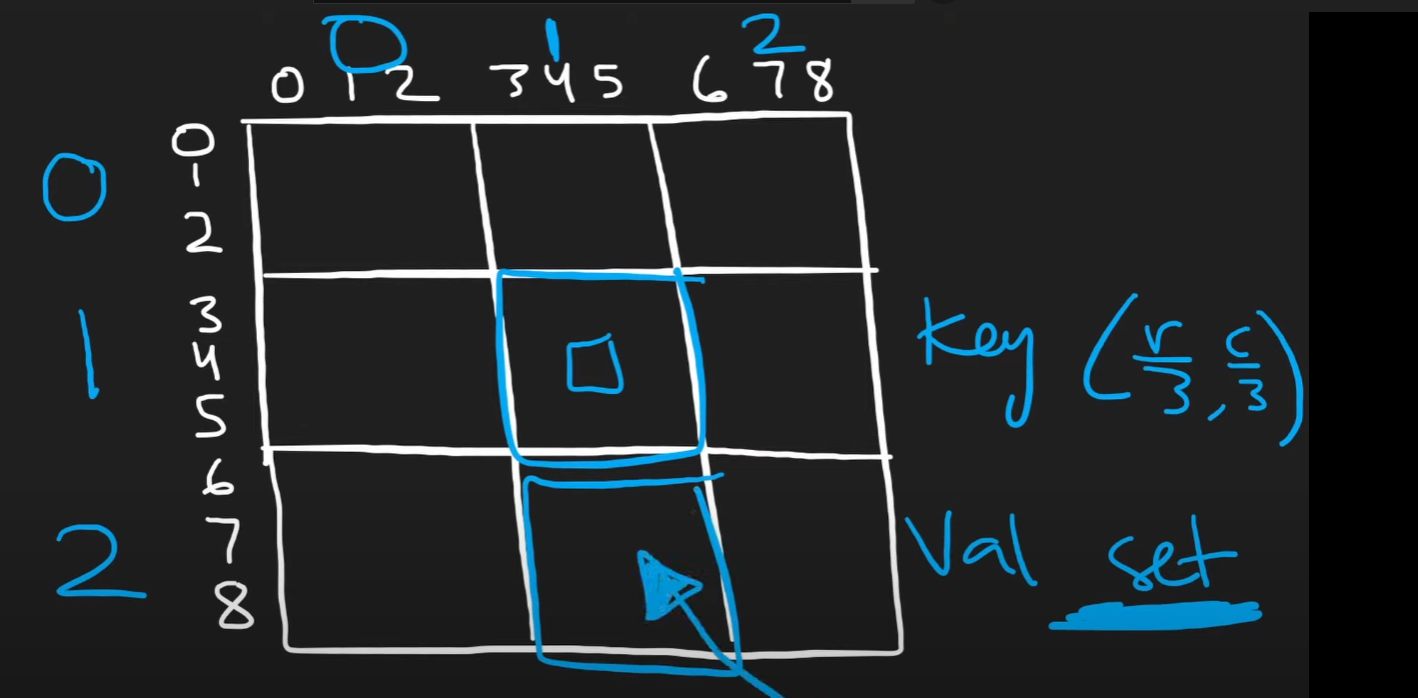 0 1 2
0 1 2 3 4 5 6 7 8
0
0
1
2
1
3
4
5
2
6
7
8
Key (r/3, c/3)
Val set